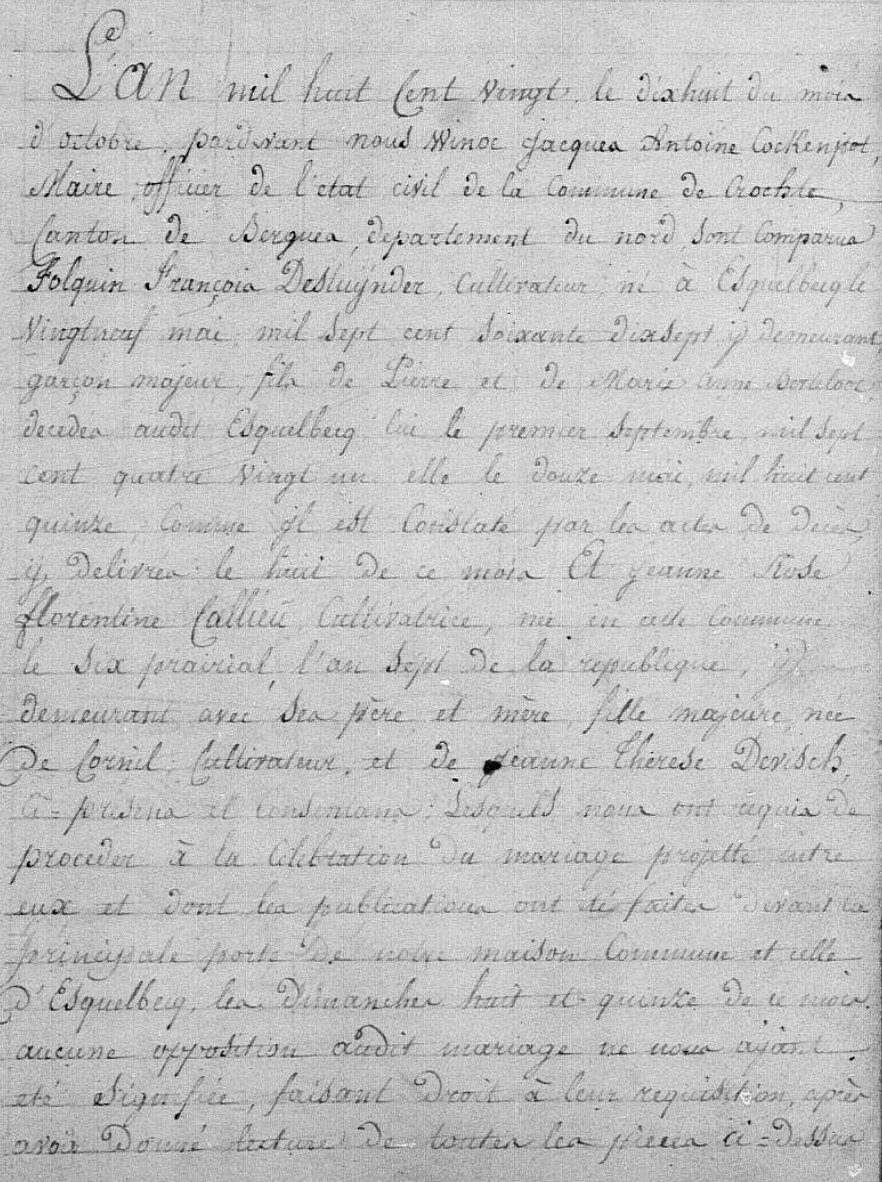 L'An mil huit Cent Vingt, le dixhuit du mois
d'octobre, pardevant nous Winoc Jacques Antoine Cockenpot,
Maire, officier de l'etat civil de la Commune de Crochte,
Canton de Bergues, departement du nord, sont Comparus
Folquin François Desluÿnder, Cultivateur, né à Esquelbecq le
Vingtneuf mai, mil sept cent soixante dixsept y demeurant,
garçon majeur, fils de Pierre et de Marie anne
decedes audit Esquelbecq lui le premier septembre, mil sept
cent quatre Vingt un elle le douze mai, mil huit cent
quinze, Comme il est Constaté par les actes de décès,
y, delivrés le huit de ce mois Et jeanne Rose
florentine Callieu, Cultivatrice, née en cette Commune
le six prairial, l'an sept de la republique, y
demeurant avec ses père et mère, fille majeure, née
De Cornil, Cultivateur, et de jeanne Thérese Devisch,
ci=presens et consentans, Lesquels nous ont requis de
proceder à la Célébration du mariage projetté entre
eux et dont les publications ont été faites devant la
principale porte de notre maison Commune et celle
d'Esquelbecq, les Dimanches huit et quinze de ce mois.
aucune opposition audit mariage ne nous ayant
eté signifiée, faisant Droit à leur requisition, après
avoir Donné lecture de toutes les pieces ci=dessus